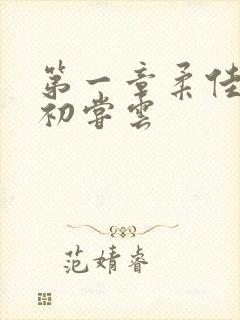 第一章柔佳
初尝云
范婧睿